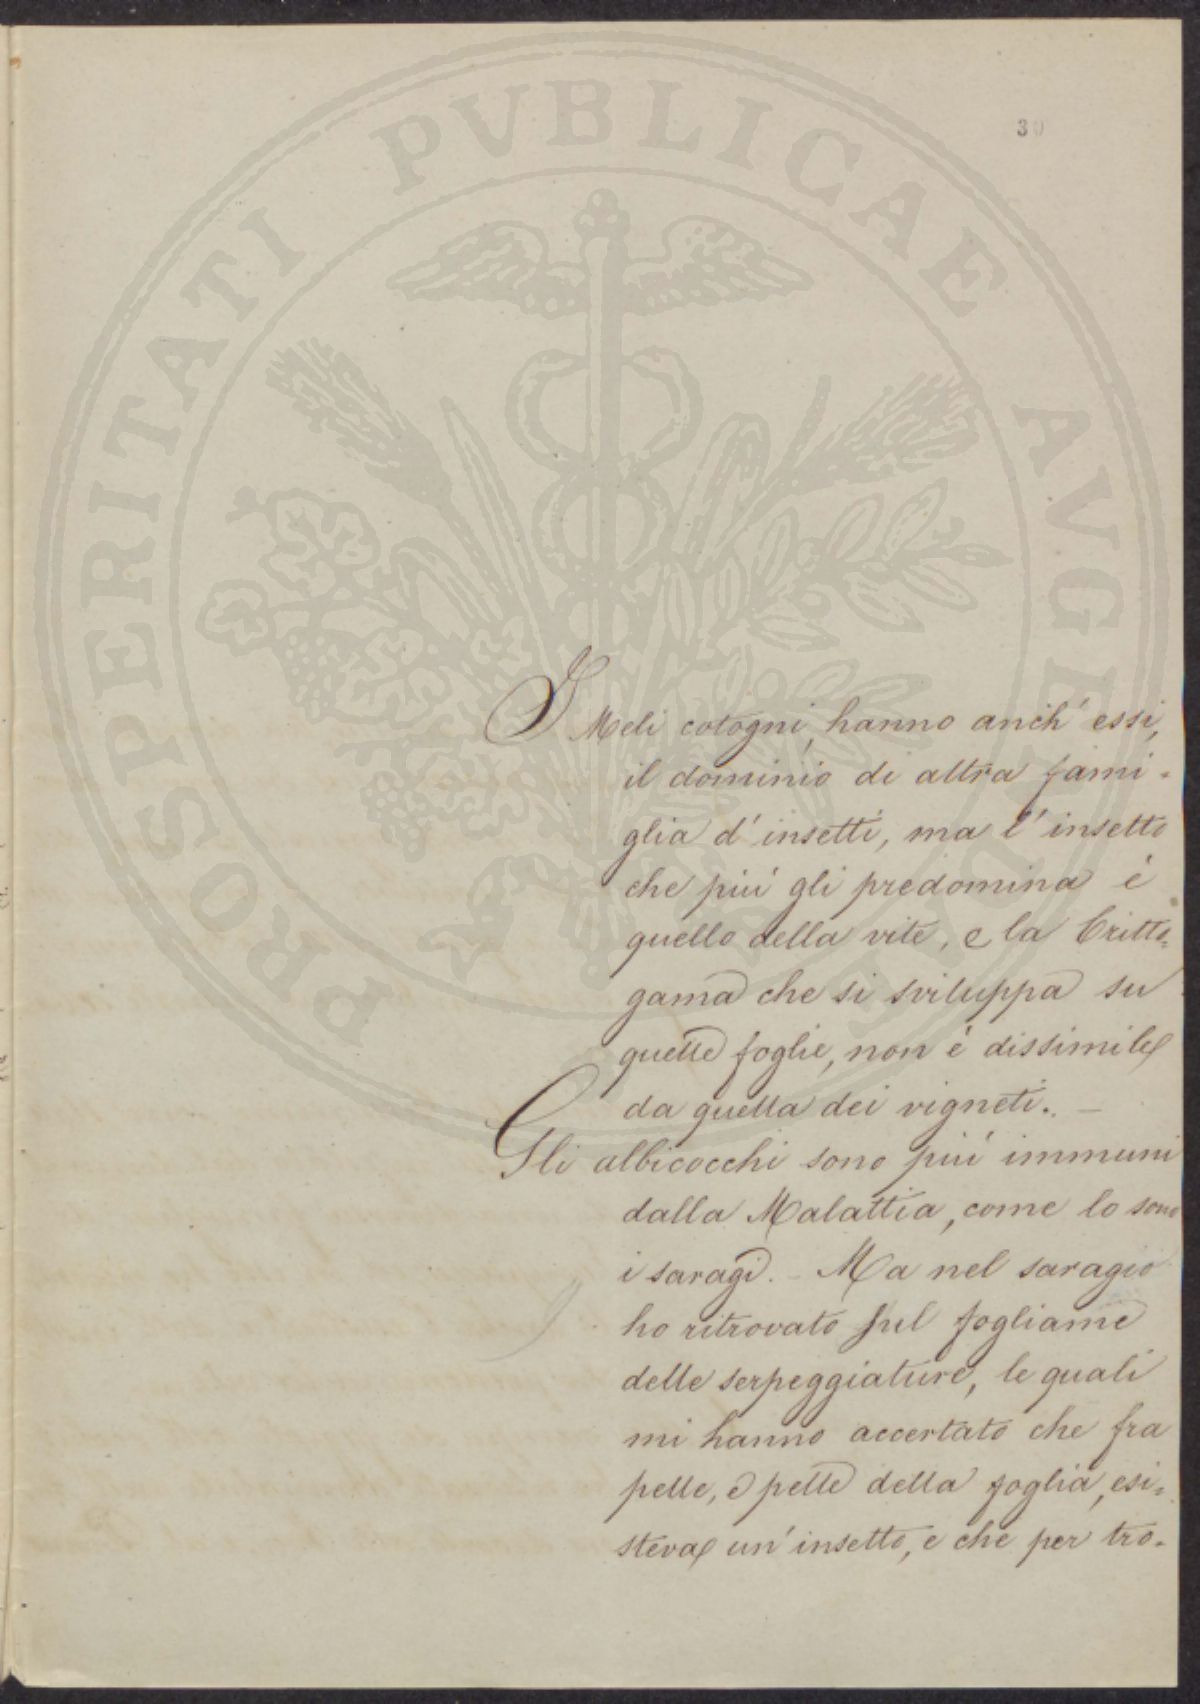 30
I Meli cotogni, hanno anch' essi,
il dominio di altra fami=
glia d' insetti, ma l' insetto
che più gli predomina è
quello della vite, e la Critto=
gama che si sviluppa su
quelle foglie, non è dissimile
da quella dei vigneti. —
Gli albicocchi sono più immuni
dalla Malattia, come lo sono
i saragi. — Ma nel saragio
ho ritrovato sul fogliame
delle serpeggiature, le quali
mi hanno accertato che fra
pelle, e pelle della foglia, esi=
steva un' insetto, e che per tro=
PROSPERITATI PVBLICAE AVGE